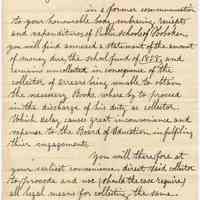 in a former communication
to your honorable body embracing receipts
and expenditures of Public schools of Hoboken,
you will find annexed a statement of the amount
of money due, the school fund of 1858, and
remains uncollected in consequence of the
collector of arrears being unable to obtain
the necessary Books, where by to proceed
in the discharge of his duty as collector
Which delay causes great inconvenience, and
expense to the Board of Education in fulfiling
their engagements.
You will therefore at
your earliest convenience, direct said collector
to procede and use (should the case require)
all legal means for collecting the same.